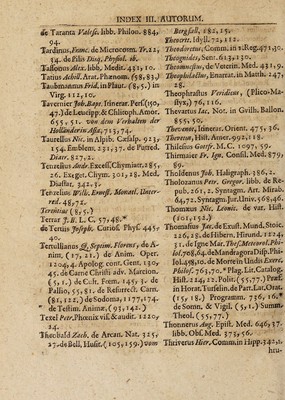 INDEX III. AUTORUM.
de Taranta Valesc. libb. Philoo. 884,
94.
Tardinus, de Microcosm. Tr. 22,
34. de Pilis Disq. Physiol. ib.
Tassonus Alex. libb. Medit. 431, 10.
Tatius Achill. Arat. Phænom. (58, 83.)
Taubmannus Frid. in Plaut. (8, 5.) in
Virg. 112, 10.
Tavernier Joh. Bapt. Itinerar. Pers. (150,
47.) de Leucipp. & Clitoph. Amor.
655, 51. von dem Verhalten der
Holländer in Asia, 713, 74.
Taurellus Nic. in Alpib. Cæsalp. 923,
154. Emblem. 231, 37. de Putred.
Disser. 827, 2.
Tentzelius Andr. Exceff. Chymiatr. 285,
26. Exeget. Chym. 301, 28. Med.
Diastat. 342, 3.
Tenzelius Wilh. Ernest. Monatl. Unter-
red. 48, 72.
Terentius (8, 5.)
Terras J. B. L. C. 57, 48.*
de Tertiis Joseph. Curios. Phys. 445,
40.
Tertullianus Q. Septim. Florens, de A-
nim. (17, 21.) de Anim. Oper.
1204, 4. Apolog. cont. Gent. 130,
45. de Carne Christi adv. Marcion.
(5, 1.) de Cult. Fœm. 145, 3. de
Passio, 55, 81. de Resurrect. Carn.
(81, 122.) de Sodoma, 1177, 174.
* de Testim. Animæ, (93, 142.)
Texel Petr. Phœnix vis. & audit. 1220,
24.
Theobald Zach. de Arcan. Nat. 325,
27. de Bell. Husit. (105, 159.) vom
Bergfall, 282, 23.
Theocrit. Idyll. 72, 112.
Theodoretus, Comm. in 2. Reg. 471, 30.
Theognides, Sent. 613, 130.
Theomnestus, de Veterin. Med. 431, 9.
Theophilactus, Enarrat. in Matth. 247,
7.
Theophrastus Veridicus, (Plico-Ma-
styx,) 76, 116.
Thevartus Jac. Not. in Gvilh. Ballon.
855, 50.
Thevenot, Itinerar. Orient. 475, 36.
Thevroz, Hist. Amer. 992, 118.
Thilesius Gottfr. M. C. 1097, 59.
Thirmaier Fr. Ign. Consil. Med. 879,
89.
Tholdenus Joh. Haligraph. 386, 2.
Tholozanus Petr. Gregor. libb. de Re-
pub. 261, 2. Syntagm. Art. Mirab.
64, 72. Syntagm. Jur. Univ. 568, 46.
Thomæus Nic. Leonic. de var. Hist.
(101, 152.)
Thomasius Jac. de Exust. Mund. Stoic.
226, 28. de Hibern. Hirund. 1124,
31. de Igne Mar. Thes. Meteorol. Phi-
lol. 708, 64. de Mandragora Disp. Phi-
lol. 458, 10. de Morte in Lindis Exerc.
Philos. 763, 70.* Plag. Lit. Catalog.
Hist. 224, 22. Polit. (55, 77.) Præf.
in Horat. Turselin. de Part. Lat. Orat.
(55, 18.) Programm. 736, 16.*
de Somn. & Vigil. (5, 1.) Summ.
Theol. (55, 77.)
Thonnerus Aug. Epist. Med. 646, 37.
libb. Obs. Med. 373, 56.
Thriverus Hier. Comm. in Hipp. 342, 1.
hru-